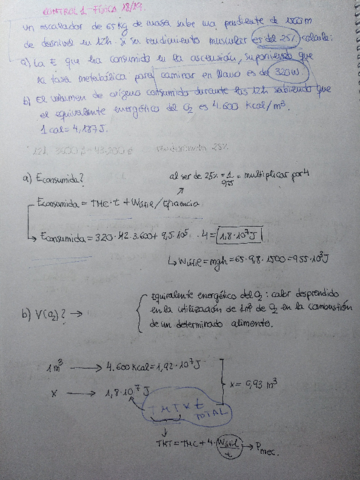 CONTROL 1 FÍSICA 18/19
Un escalador de 65kg de masa sube una pendiente de 1500m
de desnivel en 12h. Si su rendimiento muscular es del 25%, calcule:
a) La E que ha consumido en la ascensión, suponiendo que
la tasa metabólica para caminar en llano es de 320W
b) El volumen de oxígeno consumido durante las 12h sabiendo que
el equivalente energético del O2 es 4.600 Kcal/m3.
1 cal = 4,187J.
a) Econsumida?
al ser de 25% = 1/0,25 = multiplicar por 4
Econsumida = TMC·t + Wútil/eficiencia
Econsumida = 320·12·3.600 + 9,5·10^5 · 4 = 1,8·10^7 J
↳ Wútil = mgh = 65·9,8·1500 = 955·10^3 J
b) V(O2)? →
equivalente energético del O2: calor desprendido
en la utilización de 1m3 de O2 en la combustión
de un determinado alimento.
1m3 → 4.600 Kcal = 1,92·10^7 J
x → 1,8·10^7 J
x = 0,93 m3
TMT x t
total
TMT = TMC + 4 · Wútil/t → Pmec.